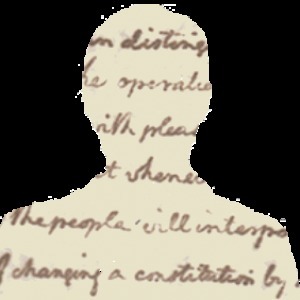 distin
he
with plea
t when
the people will interp
changing a constitution by